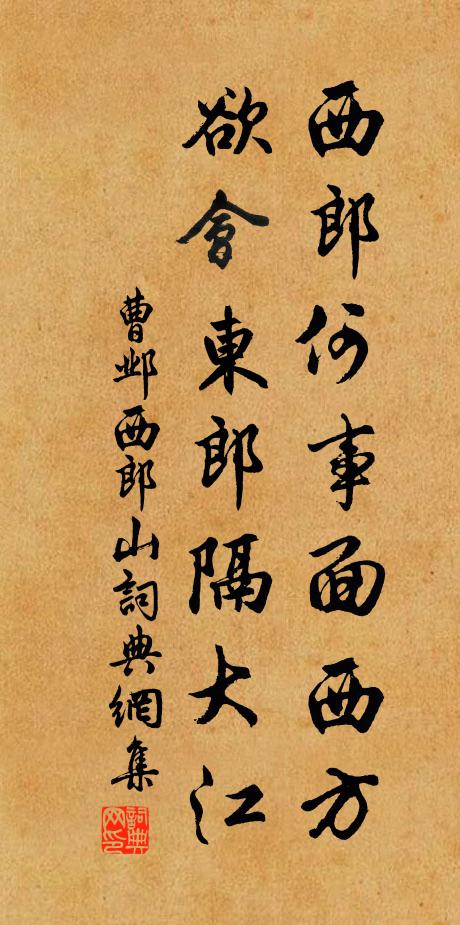 西郎何事面西方
欲會東郎隔大江
曹邺西郎山詞典網集
詞典网印